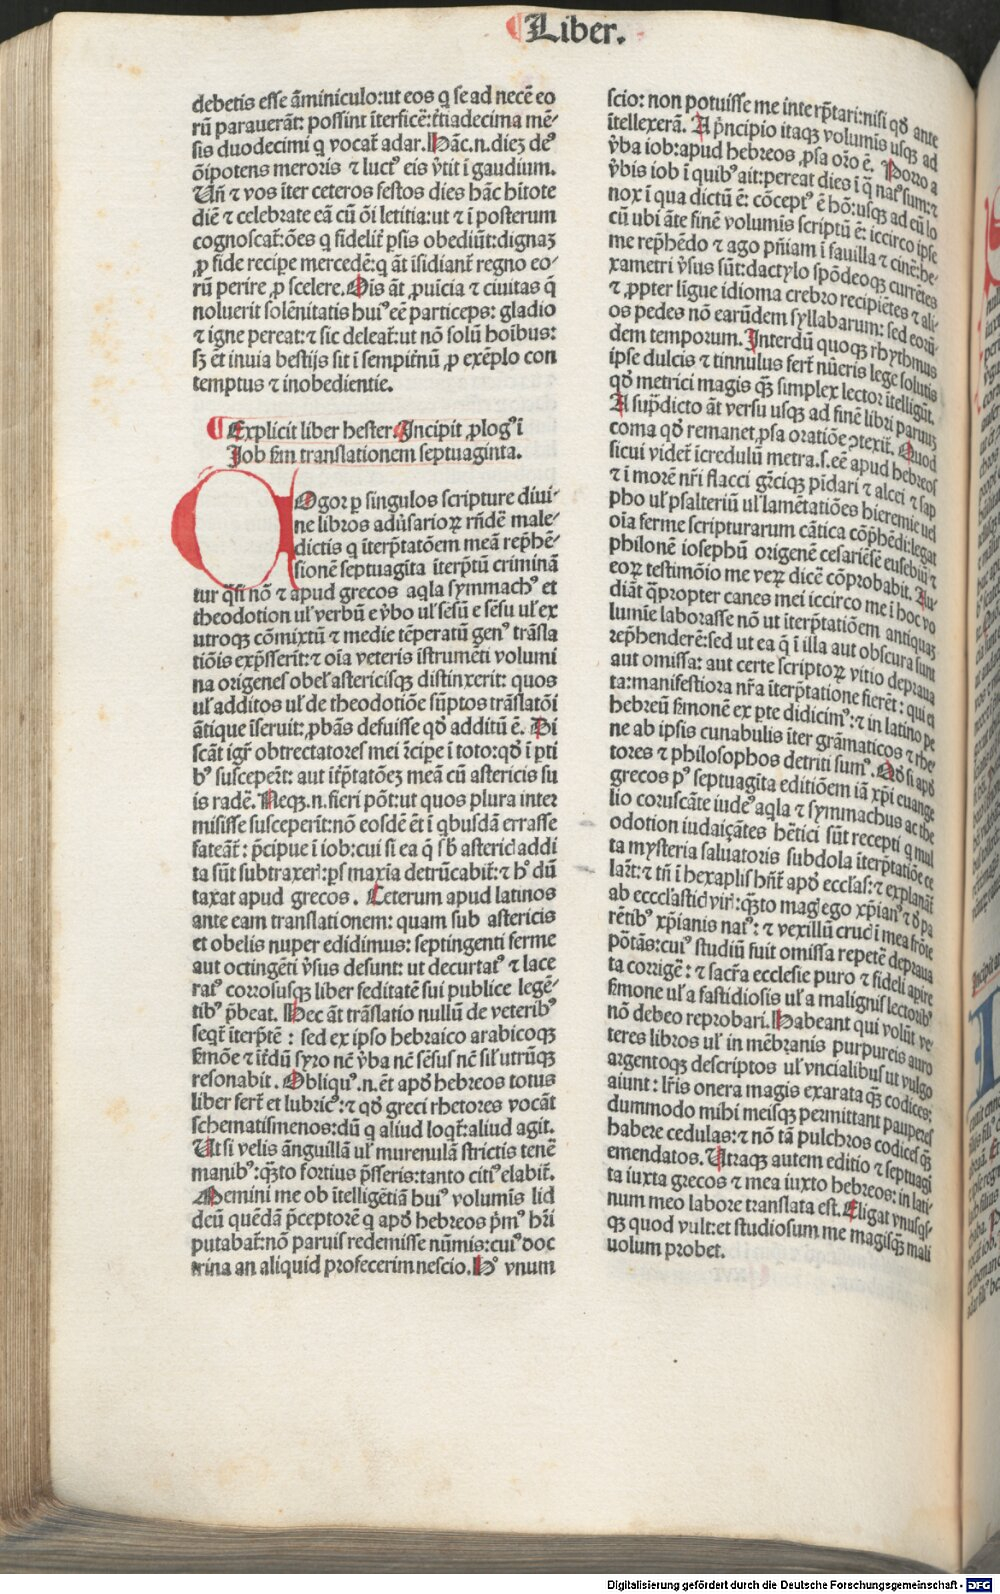 Liber.
debetis esse ãminiculo:ut eos q̃ se ad necẽ eo
rũ parauerãt: possint ĩterficẽ:tꝛ̃tiadecima mẽ-
sis duodecimi q̃ vocat̃ adar. Hãc.n.diez deꝰ
õipotens meroris ⁊ luctꝰ eis ṽtit ĩ gaudium.
Vñ ⁊ vos ĩter ceteros festos dies hãc hñtote
diẽ ⁊ celebrate eã cũ õi letitia:ut ⁊ ĩ posterum
cognoscat̃:ões q̃ fidelit̃ ꝑsis obediũt:dignaz
ꝓ fide recipe mercedẽ:q̃ ãt ĩsidiant̃ regno eo-
rũ perire ꝓ scelere. Ois ãt ꝓuĩcia ⁊ ciuitas q̃
noluerit solẽnitatis huiꝰ eẽ particeps: gladio
⁊ igne pereat:⁊ sic deleat̃:ut nõ solũ hoĩbus:
sꝫ et inuia bestijs sit ĩ sempit̃nũ ꝓ exẽplo con
temptus ⁊ inobedientie.
Explicit liber hester. Incipit ꝓlogꝰ ĩ
Job s̃m translationem septuaginta.
COgor ꝑ singulos scripture diui-
ne libros adũsarioꝝ rñdẽ male-
dictis q̃ ĩterp̃tatõem meã rep̃hẽ-
sionẽ septuagĩta ĩterp̃tũ criminã
tur q̃si nõ ⁊ apud grecos aq̃la symmachꝰ et
theodotion ul̃ verbũ e ṽbo ul̃ sẽsũ e sẽsu ul̃ ex
utroqꝫ cõmixtũ ⁊ medie tẽperatũ genꝰ trãsla
tiõis exp̃sserĩt:⁊ oĩa veteris ĩstrumẽti volumi
na origenes obel̃ astericisqꝫ distinxerit: quos
ul̃ additos ul̃ de theodotiõe sũptos trãslatõi
ãtique ĩseruit: ꝓbãs defuisse qď additũ ẽ. Di
scãt igr̃ obtrectatores mei r̃cipe ĩ toto:qď ĩ ꝑti
bꝰ susceperĩt: aut ĩt̃p̃tatõez meã cũ astericis su
is radẽ. Neqꝫ.n.fieri põt:ut quos plura inter
misisse susceperĩt:nõ eosdẽ ẽt ĩ q̃busdã errasse
fateãt̃: p̃cipue ĩ iob:cui si ea q̃ sb̃ asteric̃ addi
ta sũt subtraxer̃:ꝑs maxĩa detrũcabit̃:⁊ hꝰ dũ
taxat apud grecos. Ceterum apud latinos
ante eam translationem: quam sub astericis
et obelis nuper edidimus: septingenti ferme
aut octingẽti ṽsus desunt: ut decurtatꝰ ⁊ lace
ratꝰ corrosusqꝫ liber feditatẽ sui publice legẽ-
tibꝰ p̃beat. Hec ãt trãslatio nullũ de veteribꝰ
seqt̃ ĩterp̃tẽ: sed ex ipso hebraico arabicoqꝫ
s̃mõe ⁊ ĩt̃dũ syro nẽ ṽba nẽ sẽsuſ nẽ sil̃ utrũqꝫ
resonabit. Obliquꝰ.n.ẽt apď hebreos totus
liber fert̃ et lubricꝰ:⁊ qď greci rhetores vocãt
schematismenos:dũ q̃ aliud loqt̃:aliud agit.
Vt si velis ãnguillã ul̃ murenulã strictis tenẽ
manibꝰ:q̃to fortius p̃sseris:tanto citiꝰ elabit̃.
Memini me ob ĩtelligẽtiã huiꝰ volumĩs lid
deũ quẽdã p̃ceptorẽ q̃ apď hebreos p̃mꝰ hr̃i
putabat̃:nõ paruis redemisse nũmis:cuiꝰ doc
trina an aliquid profecerim nescio. Hꝰ vnum
scio: non potuisse me interp̃tari:nisi qď ante
ĩtellexerã. A p̃ncipio itaqꝫ volumĩs usqꝫ ad
ṽba iob:apud hebreos ꝓsa or̃o ẽ. Porro a
ṽbis iob ĩ quibꝰ ait:pereat dies ĩ q̃ natꝰ sum:⁊
nox ĩ qua dictũ ẽ: cõceptꝰ ẽ hõ: usqꝫ ad eũ lo
cũ ubi ãte finẽ volumĩs scriptũ ẽ: iccirco ipse
me rep̃hẽdo ⁊ ago pñiam ĩ fauilla ⁊ cinẽ:he-
xametri ṽsus sũt:dactylo spõdeoqꝫ curretẽs
⁊ ꝓpter lĩgue idioma crebro recipiẽtes ⁊ ali-
os pedes nõ earũdem syllabarum: sed eorũ-
dem temporum. Interdũ quoqꝫ rhythmus
ipse dulcis ⁊ tinnulus fert̃ nũeris lege solutis
qď metrici magis q̃ꝫ simplex lector ĩtelligũt.
A sup̃dicto ãt versu usqꝫ ad finẽ libri paruus
coma qď remanet ꝓsa oratiõe ɔtexit̃. Quod
sicui videt̃ ĩcredulũ metra.s.eẽ apud hebreos
⁊ ĩ morẽ nr̃i flacci gr̃ciqꝫ pĩdari ⁊ alcei ⁊ sap
pho ul̃ psalteriũ ul̃ lamẽtatiões hieremie uel
oĩa ferme scripturarum cãtica cõp̃hẽdi:legat
philonẽ iosephũ origenẽ cesariẽsẽ eusebiũ ⁊
eoꝝ testimõio me veꝝ dicẽ cõprobabit. Au-
diãt q̃propter canes mei iccirco me ĩ hoc vo
lumĩe laborasse nõ ut ĩterp̃tatiõem antiquaz
rep̃henderẽ:sed ut ea q̃ ĩ illa aut obscura sunt
aut omissa: aut certe scriptoꝝ vitio deprauа
ta:manifestiora nr̃a ĩterp̃tatione fierẽt: qui et
hebreũ s̃monẽ ex pte didicimꝰ:⁊ in latino pe
ne ab ipsis cunabulis ĩter grãmaticos ⁊ rhe
tores ⁊ philosophos detriti sumꝰ. Qď si apď
grecos pꝰ septuagĩta editiõem iã xp̃i euange
lio coruscãte iudeꝰ aq̃la ⁊ symmachus ac the
odotion iudaiçãtes hẽtici sũt recepti q̃ mul
ta mysteria saluatoris subdola ĩterp̃tatiõe ce
lar̃t:⁊ tñ ĩ hexaplis hñt̃ apď eccl̃as:⁊ explanãt̃
ab ecccl̃asticꝭ viris̃:q̃to mag̃ ego xp̃ianꝰ ⁊ ď pa
rẽtibꝰ xp̃ianis natꝰ: ⁊ vexillũ crucꝭ ĩ mea frõte
põtãs:cuiꝰ studiũ fuit omissa repetẽ deprauа
ta corrigẽ: ⁊ sacr̃a ecclesie puro ⁊ fideli apire
s̃mone ul̃ a fastidiosis ul̃ a malignis lectoribꝰ
nõ debeo reprobari. Habeant qui volũt ve
teres libros ul̃ in mẽbranis purpureis auro
argentoqꝫ descriptos ul̃ vncialibus ut vulgo
aiunt: lr̃is onera magis exarata q̃ꝫ codices:
dummodo mihi meisqꝫ permittant pauperes
habere cedulas:⁊ nõ tã pulchros codices q̃ꝫ
emendatos. Vtraqꝫ autem editio ⁊ septuagi
ta iuxta grecos ⁊ mea iuxto hebreos: in lati
num meo labore translata est. Eligat vnusqs-
qꝫ quod vult:et studiosum me magisqꝫ mali
uolum probet.
Digitalisierung gefördert durch die Deutsche Forschungsgemeinschaft - DFG